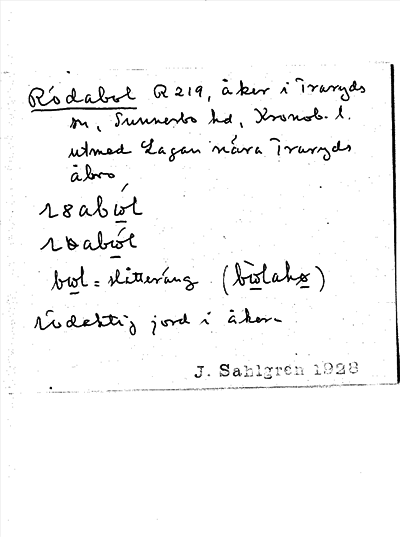 Rödabol R 219, åker i Traryds
sn, Sunnerbo hd, Kronob. l.
utmed Lagan nära Traryds
åbro
bωl = slåtteräng
rödaktig jord i åker
J. Sahlgren 1928